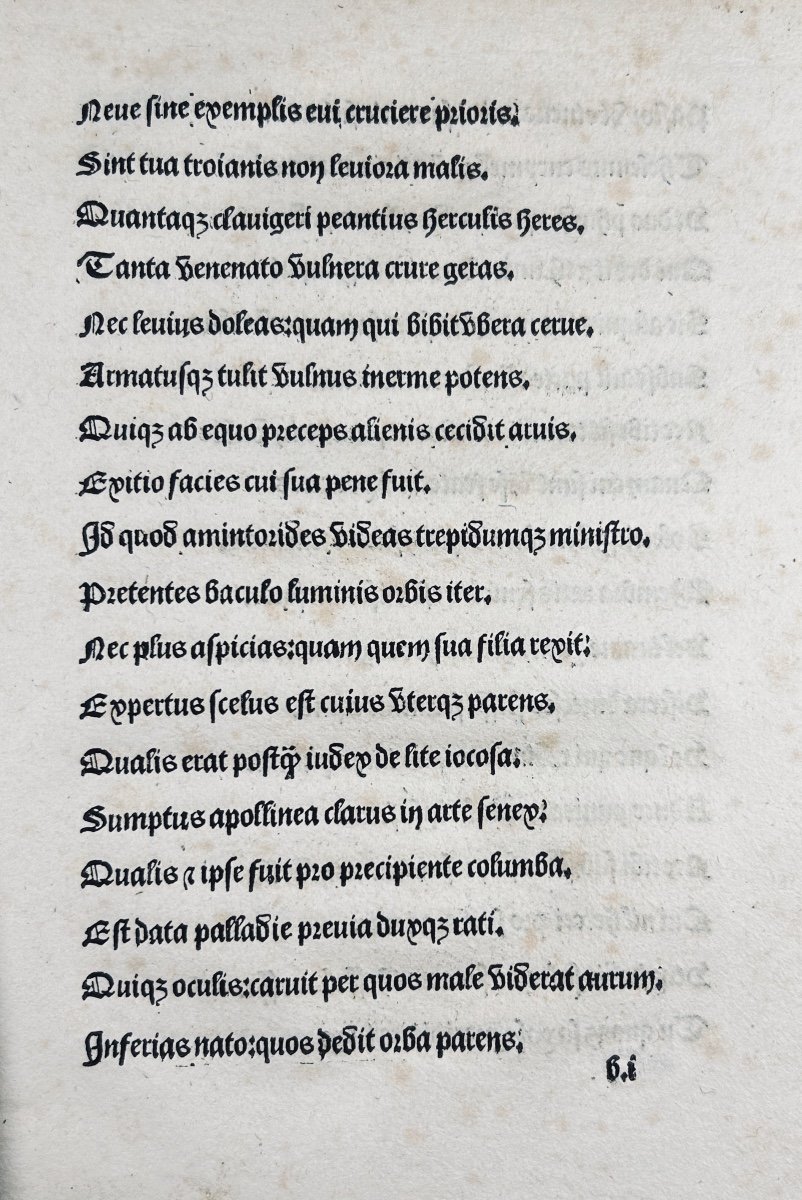 Neue sine exemplis eui cruciere prioris:
Sint tua troianis non leuiora malis.
Quantaqꝫ clauigeri peantius herculis heres.
Tanta venenato vulnera crure geras.
Nec leuius doleas:quam qui bibit vbera cerue.
Armatusqꝫ tulit vulnus inerme potens.
Quiqꝫ ab equo preceps alienis cecidit aruis.
Exitio facies cui sua pene fuit.
Id quod amintorides videas trepidumqꝫ ministro.
Pretentes baculo luminis orbis iter.
Nec plus aspicias:quam quem sua filia rexit:
Expertus scelus est cuius vterqꝫ parens.
Qualis erat postꝙ̃ iudex de lite iocosa:
Sumptus apollinea clarus in arte senex:
Qualis ⁊ ipse fuit pro precipiente columba.
Est data palladie preuia duxqꝫ rati.
Quiqꝫ oculis:caruit per quos male viderat aurum.
Inferias nato:quos dedit orba parens.
b.i